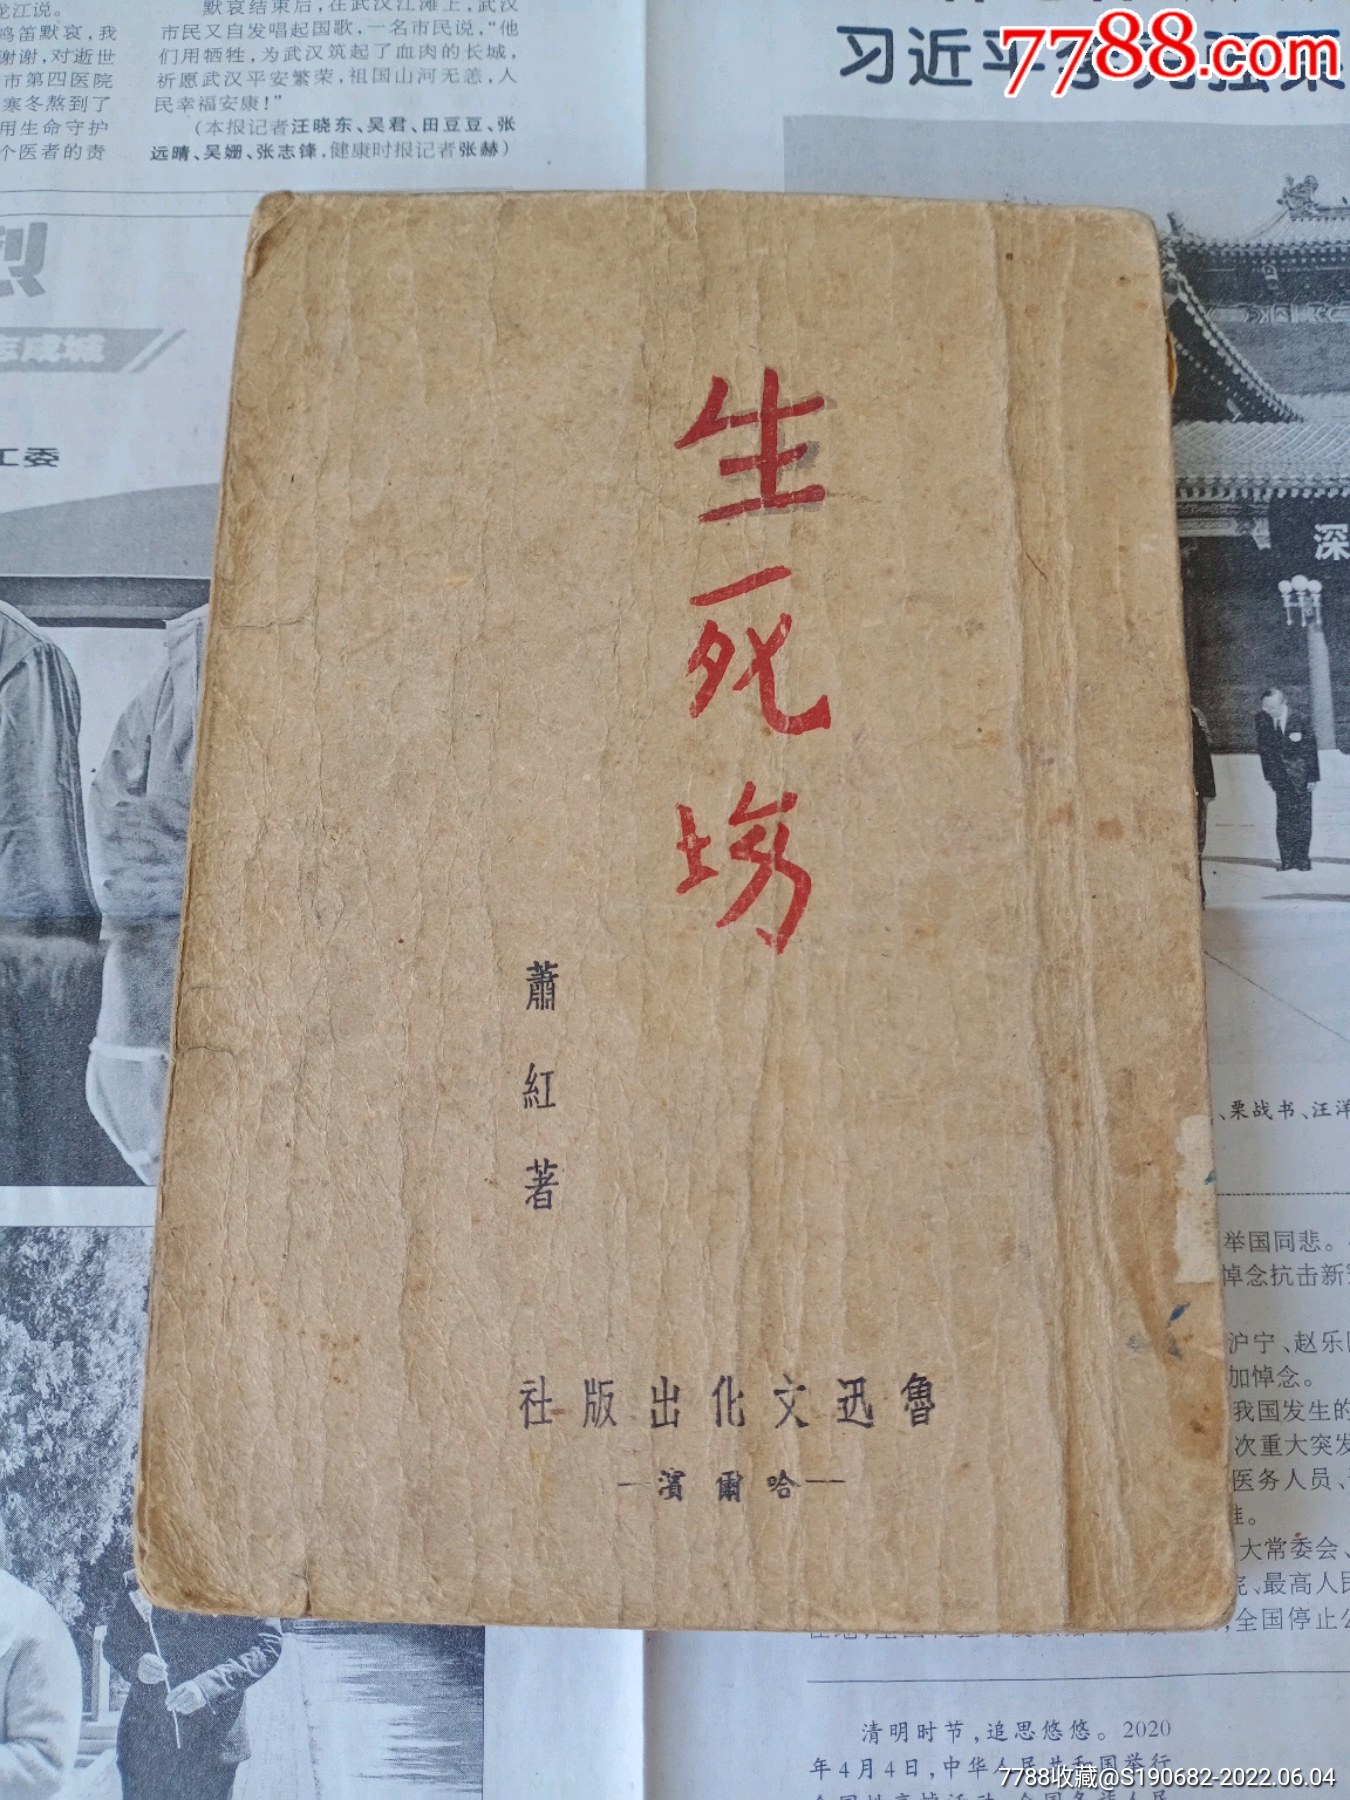 龙江说。
鸣笛默哀，我
谢谢，对逝世
市第四医院
寒冬熬到了
用生命守护
个医者的责
默哀结束后，在武汉江滩上，武汉
市民又自发唱起国歌，一名市民说，“他
们用牺牲，为武汉筑起了血肉的长城，
祈愿武汉平安繁荣，祖国山河无恙，人
民幸福安康！”
（本报记者汪晓东、吴君、田豆豆、张
远晴、吴姗、张志锋，健康时报记者张赫）
习近平
7788.com
烈
志成城
工委
深
生死场
蕭紅著
魯迅文化出版社
—哈爾濱—
、栗战书、汪洋
举国同悲。
悼念抗击新
沪宁、赵乐
加悼念。
我国发生的
次重大突发
医务人员、
大常委会、
院、最高人民
全国停止公
清明时节，追思悠悠。2020
年4月4日，中华人民共和国举行
7788收藏@S190682-2022.06.04